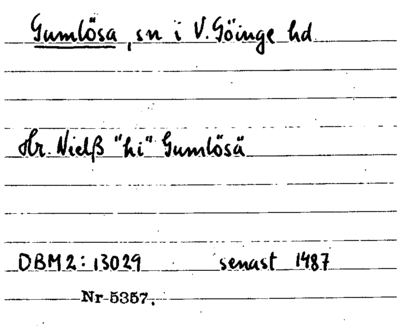 Gumlösa, sn i V. Göinge hd
Hr. Nielß "hi" Gumlösä
DBM2: 13029 senast 1487
Nr 5357.